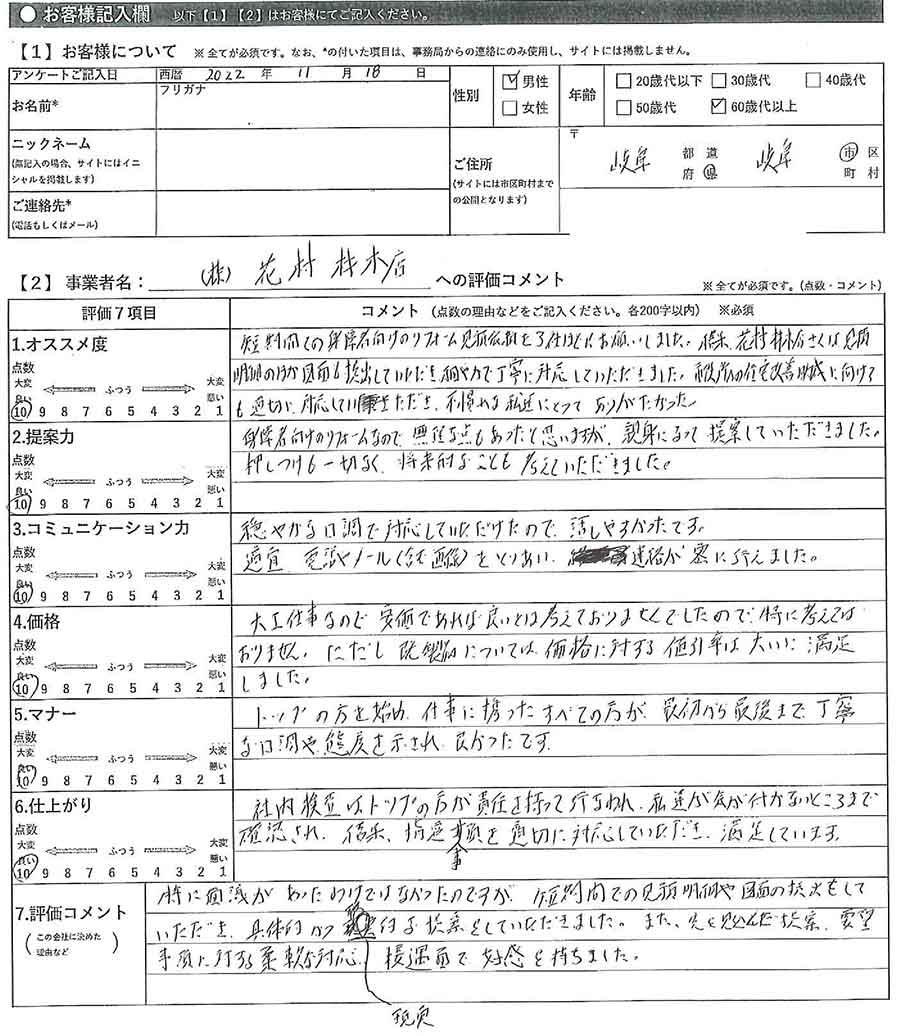 ● お客様記入欄 以下【1】【2】はお客様にてご記入ください。
【1】お客様について ※全てが必須です。なお、*の付いた項目は、事務局からの連絡にのみ使用し、サイトには掲載しません。
アンケートご記入日 西暦 2022 年 11 月 18 日
お名前* フリガナ
性別 ☑男性 □女性
年齢 □20歳代以下 □30歳代 □40歳代
□50歳代 ☑60歳代以上
ニックネーム
(無記入の場合、サイトにはイニ
シャルを掲載します)
ご連絡先*
(電話もしくはメール)
ご住所
(サイトには市区町村まで
の公開となります)
〒
岐阜 都道府県 岐阜 市区町村
【2】事業者名: (株)花村材木店 への評価コメント ※全てが必須です。(点数・コメント)
評価7項目 コメント (点数の理由などをご記入ください。各200字以内) ※必須
1.オススメ度
点数
大変良い ふつう 大変悪い
10 9 8 7 6 5 4 3 2 1
短期間での身障者向けのリフォーム見積依頼を3社ほどにお願いしました。結果、花村材木店さんは見積
明細のほか図面も提出していただき細やかで丁寧に対応していただきました。市役所の住宅改善助成に向けて
も適切に対応していただき、不慣れな私達にとってありがたかった。
2.提案力
点数
大変良い ふつう 大変悪い
10 9 8 7 6 5 4 3 2 1
身障者向けのリフォームなので無理な点もあったと思いますが、親身になって提案していただきました。
押しつけも一切なく、将来的なことも考えていただきました。
3.コミュニケーション力
点数
大変良い ふつう 大変悪い
10 9 8 7 6 5 4 3 2 1
穏やかな口調で対応していただけたので、話しやすかったです。
適宜 電話やメール(含む画像)をとりあい、連絡が密に行えました。
4.価格
点数
大変良い ふつう 大変悪い
10 9 8 7 6 5 4 3 2 1
大工仕事なので安価であれば良いとは考えておりませんでしたので、特に考えては
おりません。ただし既製品については価格に対する値引率は大いに満足
しました。
5.マナー
点数
大変良い ふつう 大変悪い
10 9 8 7 6 5 4 3 2 1
トップの方を始め、仕事に携ったすべての方が、最初から最後まで丁寧
な口調や態度を示され、良かったです。
6.仕上がり
点数
大変良い ふつう 大変悪い
10 9 8 7 6 5 4 3 2 1
社内検査はトップの方が責任を持って行なわれ、私達が気が付かないところまで
確認され、結果、指適事項を適切に対応していただき、満足しています。
7.評価コメント
(この会社に決めた
理由など)
特に面識があったわけではなかったのですが、短期間での見積明細や図面の提出をして
いただき、具体的かつ現実的な提案をしていただきました。また、先を見込んだ提案、要望
事項に対する柔軟な対応、接遇面で好感を持ちました。